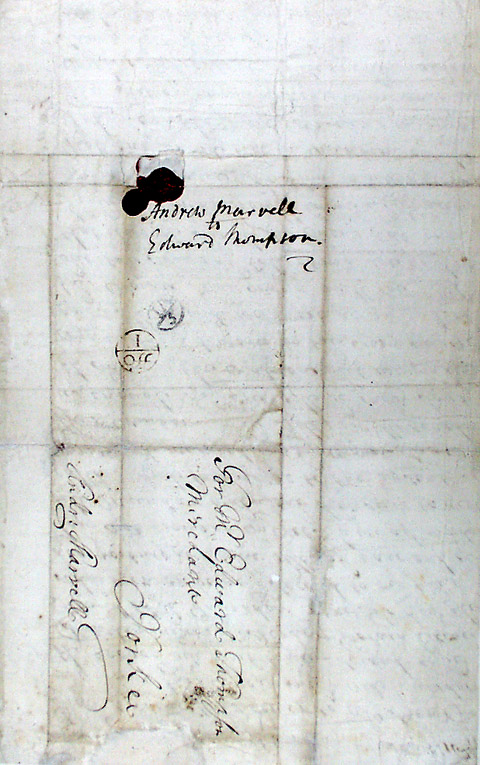 Andrew Marvell
to
Edward Thompson.
For Mr Edward Thompson
Merchant
Yorke
Andr: Marvell